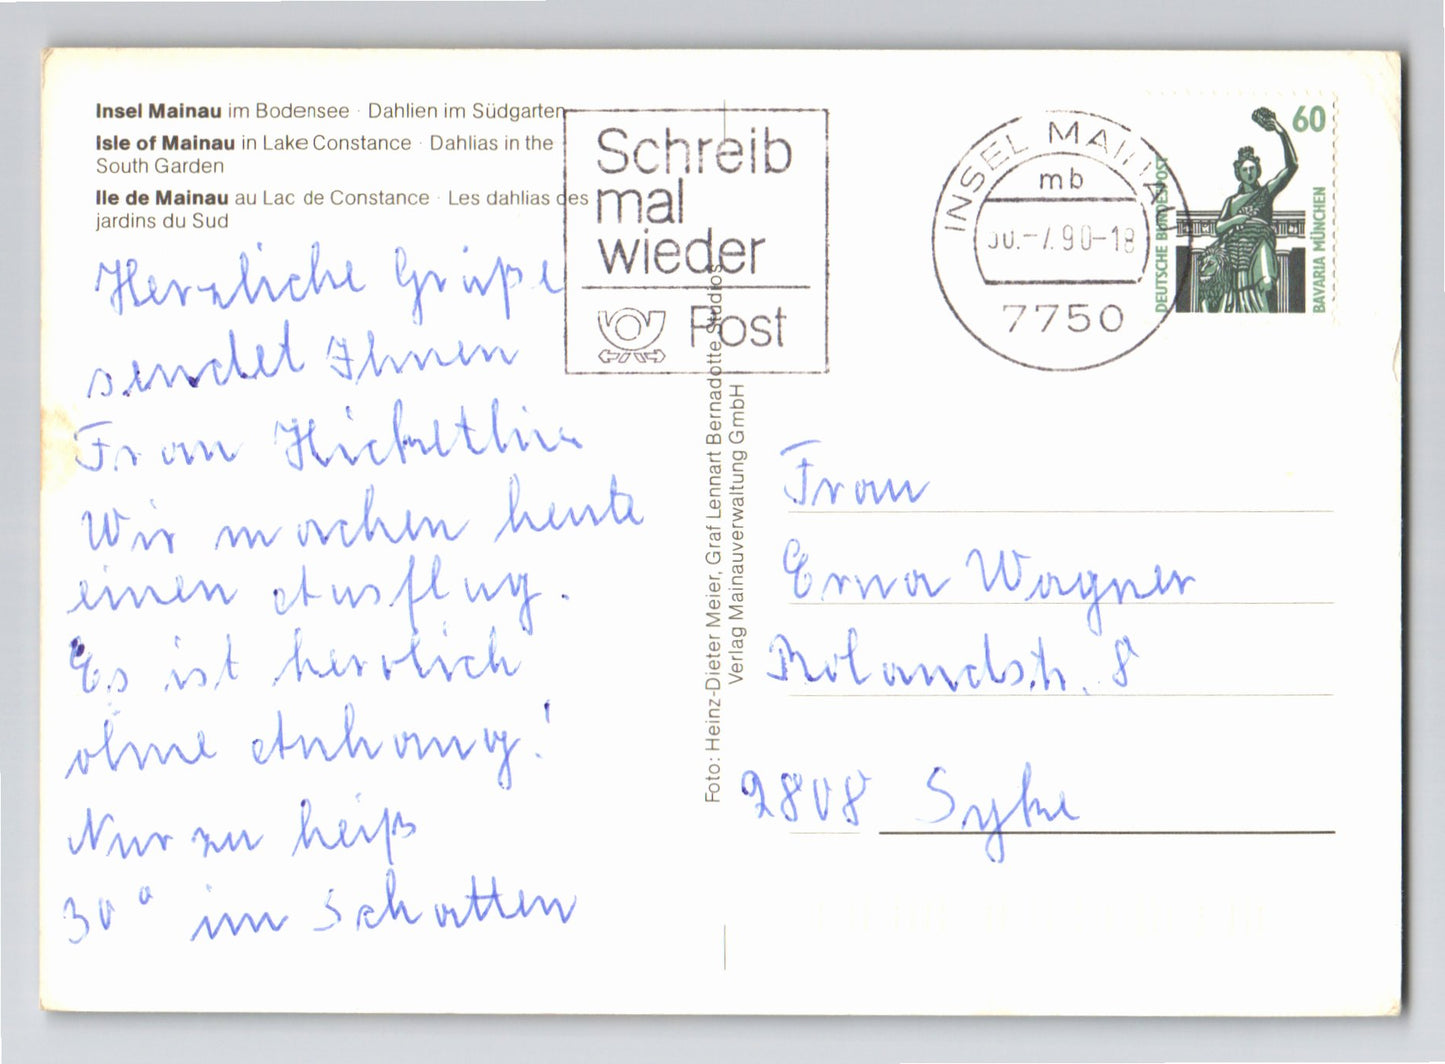 Insel Mainau im Bodensee · Dahlien im Südgarten
Isle of Mainau in Lake Constance · Dahlias in the
South Garden
Ile de Mainau au Lac de Constance · Les dahlias des
jardins du Sud
Herzliche Grüße
sendet Ihnen
Frau
Wir machen heute
einen Ausflug.
Es ist herrlich
ohne Anhang!
Nur zu heiß
30° im Schatten
Schreib
mal
wieder
Post
Foto: Heinz-Dieter Meier, Graf Lennart Bernadotte Studios
Verlag Mainauverwaltung GmbH
INSEL MAINAU
mb
30.-7.90-18
7750
60
DEUTSCHE BUNDESPOST
BAVARIA MÜNCHEN
Frau
Erna Wagner
Rolandstr. 8
2808 Syke